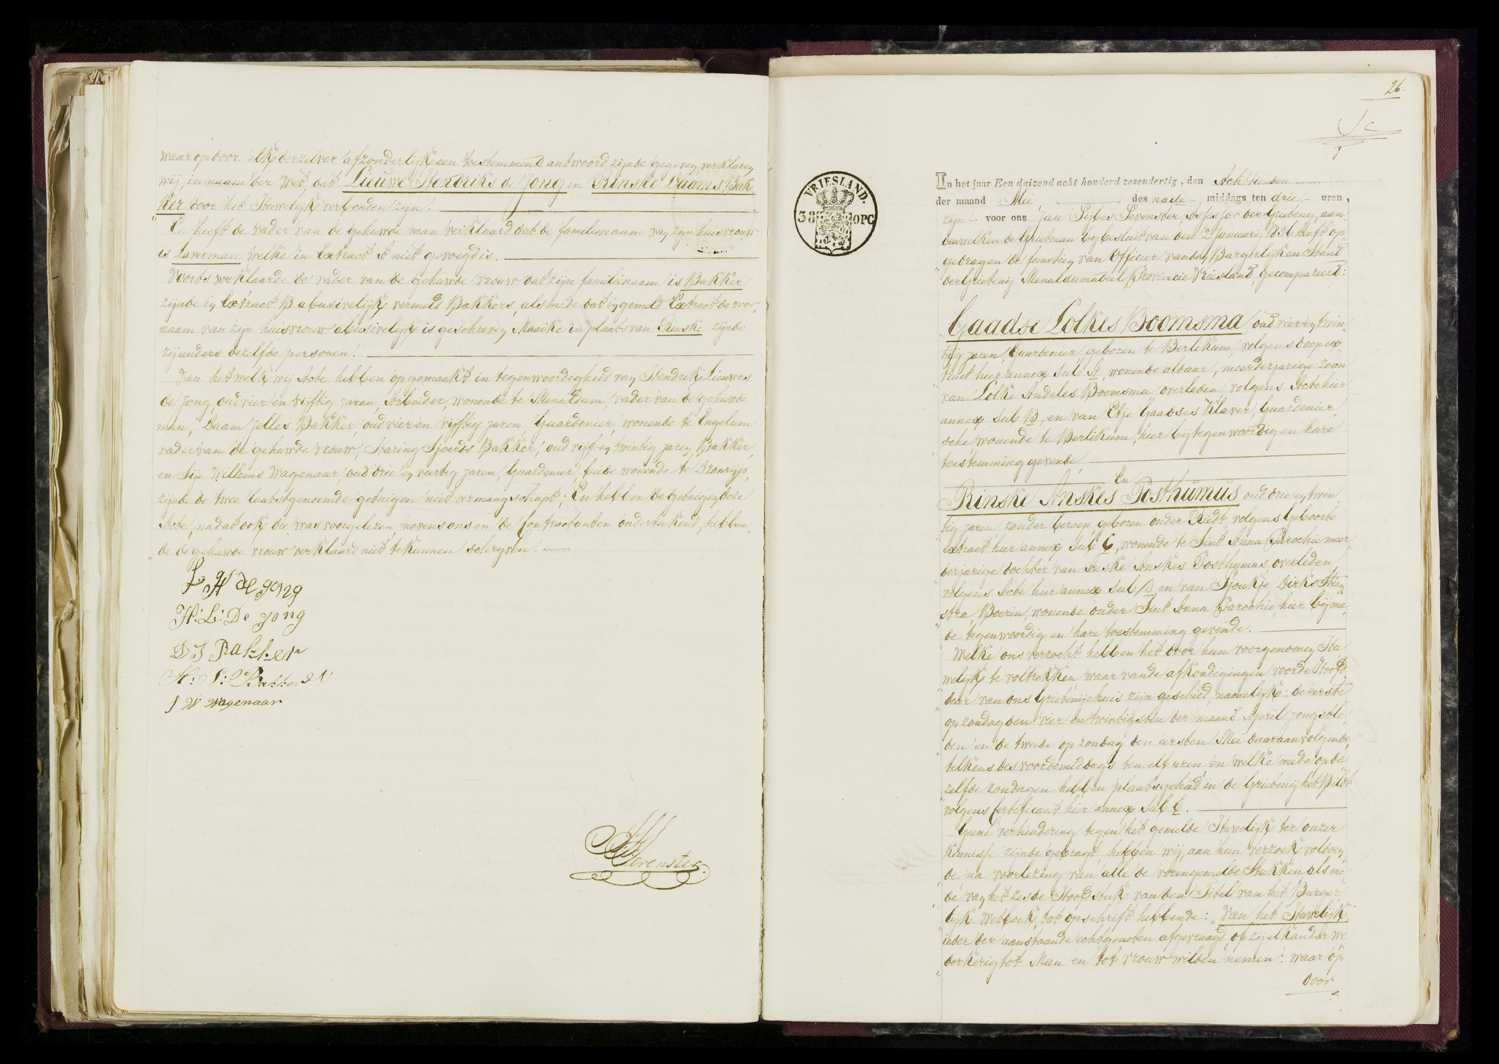 waar op door elk derzelver afzonderlijk een toestemmend antwoord zijnde gegeven, verklaren
wij, in naam der Wet, dat Lieuwe Hendriks de Jong en Rinske Daams Bak-
ker door het Huwelijk verbonden zijn.
En heeft de vader van de gehuwde man verklaard dat de familienaam van zijn huisvrouw
is welke in Extract niet gevoegd is.
Voorts verklaarde de vader van de gehuwde vrouw dat zijn familienaam is Bakker
zijnde bij Extract B abusivelijk vermeld Bakkers, alsmede dat bij gemeld Extract de voor-
naam van zijn huisvrouw abusivelijk is geschreven in plaats van zijnde
dezelfde personen.
Van het welk wij Acte hebben opgemaakt in tegenwoordigheid van Hendrik Lieuwes
de Jong, oud vier en vijftig jaren, wonende te Menaldum, vader van de gehuwde
man, Daam Jelles Bakker, oud vier en vijftig jaren, Gardenier, wonende te Engelum
vader van de gehuwde vrouw, Haring Sjoerds Bakker, oud vijf en twintig jaren, Bakker,
en Willems Wagenaar, oud drie en veertig jaren, Gardenier, beide wonende te
zijnde de twee laatstgenoemde getuigen niet vermaagschapt; En hebben de getuigen deze
Acte, nadat ook die was voorgelezen nevens ons en de Comparanten onderteekend, hebben-
de de gehuwde vrouw verklaard niet te kunnen schrijven.
L H de Jong
H: L: De Jong
D J Bakker
H: S: Bakker
J W Wagenaar
26.
VRIESLAND.
In het jaar Een duizend acht honderd zesendertig, den Achttienden
der maand Mei, des na de middags ten drie uren,
zijn voor ons Jan
den Grietman bij besluit van den 2 Januarij 1831 heeft op-
gedragen de functien van Officier van den Burgerlijken Stand
der Grietenij Menaldumadeel Provincie Vriesland, gecompareerd:
Gaadse Lolkes Boomsma, oud vier en twin-
tig jaren, Gardenier, geboren te Berlikum, volgens doopex-
tract hier annex Sub A, wonende aldaar, meerderjarige zoon
van Lolke Andeles Boomsma overleden, volgens Acte hier
annex Sub B, en van Eltje Gaadses Klaver, Gardenier-
sche wonende te Berlikum, hier bij tegenwoordig en hare
toestemming gevende,
En
Rinske Anskes Posthumus oud drie en twin-
tig jaren, zonder beroep, geboren onder Riedt, volgens Geboorte
Extract hier annex Sub C, wonende te Sint Anna Parochie meer-
derjarige dochter van Anske Anskes Posthumus overleden
volgens Acte hier annex Sub D, en van Sjoukje Dirks
stra, Boerin, wonende onder Sint Anna Parochie, hier bij me-
de tegenwoordig en hare toestemming gevende.
Welke ons verzocht hebben het door hun voorgenomen Hu-
welijk te voltrekken waar van de afkondigingen voor de Hoofd-
deur van ons Grietenijehuis zijn geschied, namelijk: de eerste
op zondag den vier en twintigsten der maand April jongstle-
den en de tweede op zondag den eersten Mei daaraanvolgende,
telkens des voordemiddags ten elf uren en welke mede op de-
zelfde zondagen hebben plaats gehad in de Grietenij het Bildt
volgens Certificaat hier annex Sub E.
Geene verhindering tegen het gemelde Huwelijk ter onzer
kennisse zijnde gebragt, hebben wij, aan hun verzoek voldoen-
de na voorlezing van alle de voorengemelde Stukken als me-
de van het zesde Hoofdstuk van den Titel van het Burger-
lijk Wetboek, tot opschrift hebbende: Van het Huwelijk,
ieder der aanstaande echtgenooten afgevraagd of zij elkander we-
derkeerig tot Man en tot vrouw wilden nemen: waar op
door